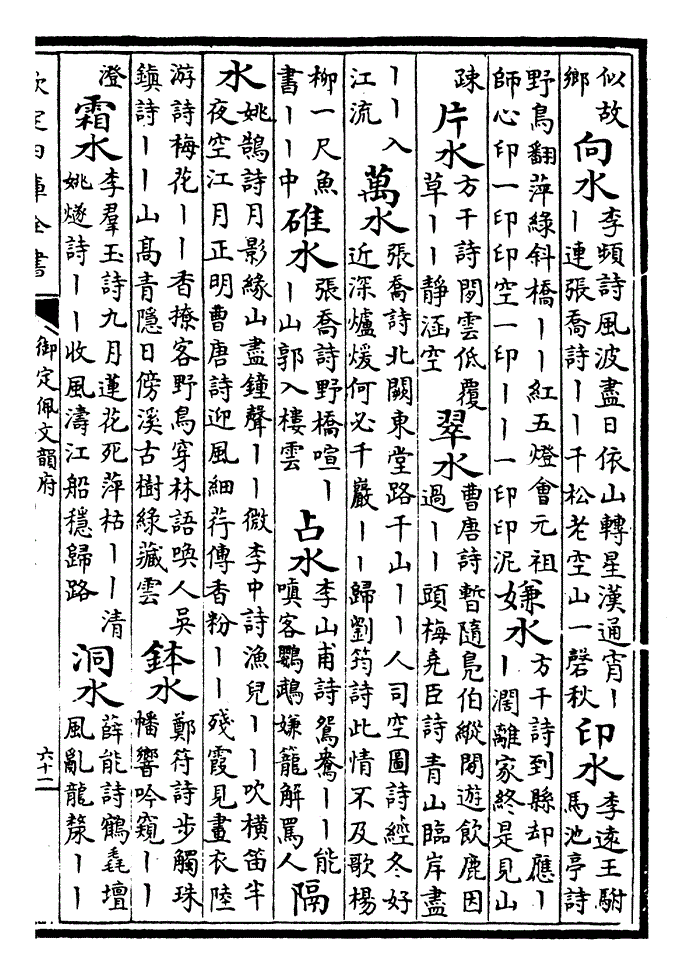 似故鄉 向水 李頻詩風波盡日依山轉星漢通宵丨丨連張喬詩丨丨千松老空山一磬秋 印水 李遠王駙馬池亭詩
野鳥翻萍綠斜橋丨丨紅五燈會元祖師心印一印印空一印丨丨一印印泥 嫌水 方干詩到縣却應丨丨濶離家終是見山
踈 片水 方干詩閒雲低覆草丨丨靜涵空 翠水 曹唐詩暫隨鳬伯縱閒遊飲鹿因過丨丨頭梅堯臣詩青山臨岸盡
丨丨入江流 萬水 張喬詩北闕東堂路千山丨丨人司空圖詩經冬好近深爐煖何必千巖丨丨歸劉筠詩此情不及歌楊
柳一尺魚書丨丨中 碓水 張喬詩野橋喧丨丨山郭入樓雲 占水 李山甫詩鴛鴦丨丨能嗔客鸚鵡嫌籠解罵人 隔
水 姚鵠詩月影緣山盡鐘聲丨丨微李中詩漁兒丨丨吹橫笛半夜空江月正明曹唐詩迎風細荇傳香粉丨丨殘霞見畫衣陸
游詩梅花丨丨香撩客野鳥穿林語喚人吳鎮詩丨丨山髙青隱日傍溪古樹綠藏雲 鉢水 鄭符詩步觸珠幡響吟窺丨丨
澄 霜水 李羣玉詩九月蓮花死萍枯丨丨清姚燧詩丨丨收風濤江船穩歸路 洞水 薛能詩鶴毳壇風亂龍漦丨丨
欽定四庫全書 御定佩文韻府 六十二